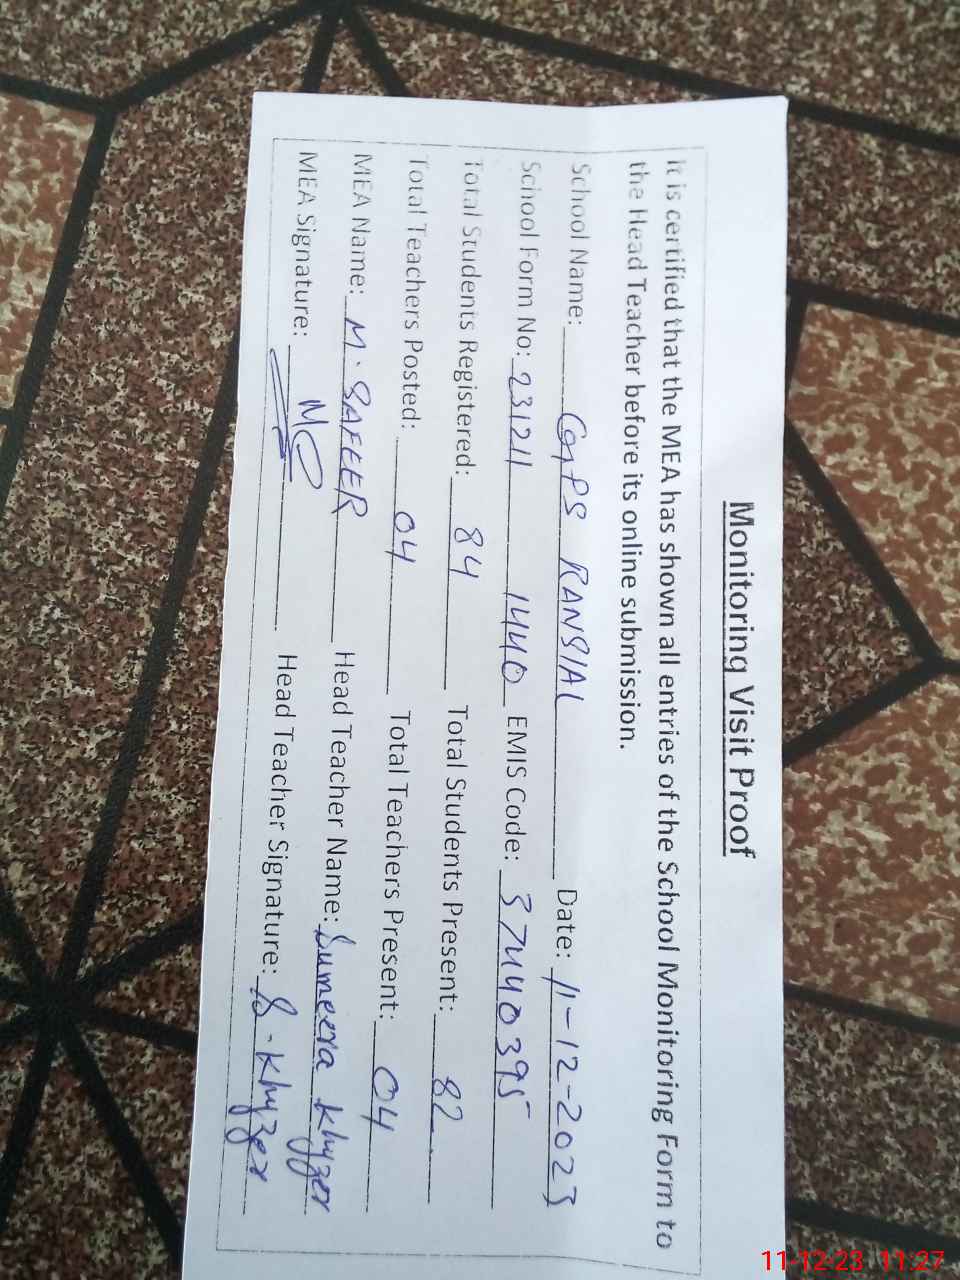 Monitoring Visit Proof
It is certified that the MEA has shown all entries of the School Monitoring Form to
the Head Teacher before its online submission.
School Name: GGPS RANSIAL Date: 11-12-2023
School Form No: 231211 1440 EMIS Code: 37440395
Total Students Registered: 84 Total Students Present: 82
Total Teachers Posted: 04 Total Teachers Present: 04
MEA Name: M. SAFEER Head Teacher Name: Sumeera Khyzer
MEA Signature: Head Teacher Signature: S. Khyzer
11-12-23 11:27